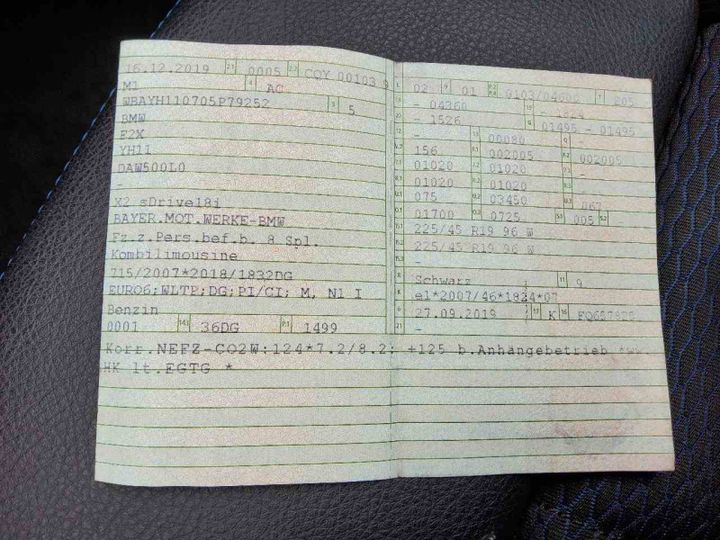 16.12.2019 2.1 0005 2.2 CQY 00103 9
M1 4 AC
WBAYH110705P79252 3 5
BMW
F2X
YH11
DAW500L0
-
X2 sDrive18i
BAYER.MOT.WERKE-BMW
Fz.z.Pers.bef.b. 8 Spl.
Kombilimousine
715/2007*2018/1832DG
EURO6;WLTP;DG;PI/CI; M, N1 I
Benzin
0001 14.1 36DG P.1 1499
L 02 9 01 0103/04600 T 205
18 - 04360 1824
20 - 1526 G 01495 - 01495
12 - 13 00080 Q -
156 002005 002005
01020 01020 -
01020 01020 -
075 03450 067
01700 0725 005
225/45 R19 96 W
225/45 R19 96 W
-
Schwarz 11 9
e1*2007/46*1824*07
27.09.2019 17 K 16
21 -
Korr.NEFZ-CO2W:124*7.2/8.2: +125 b.Anhängebetrieb
HK lt.EGTG *